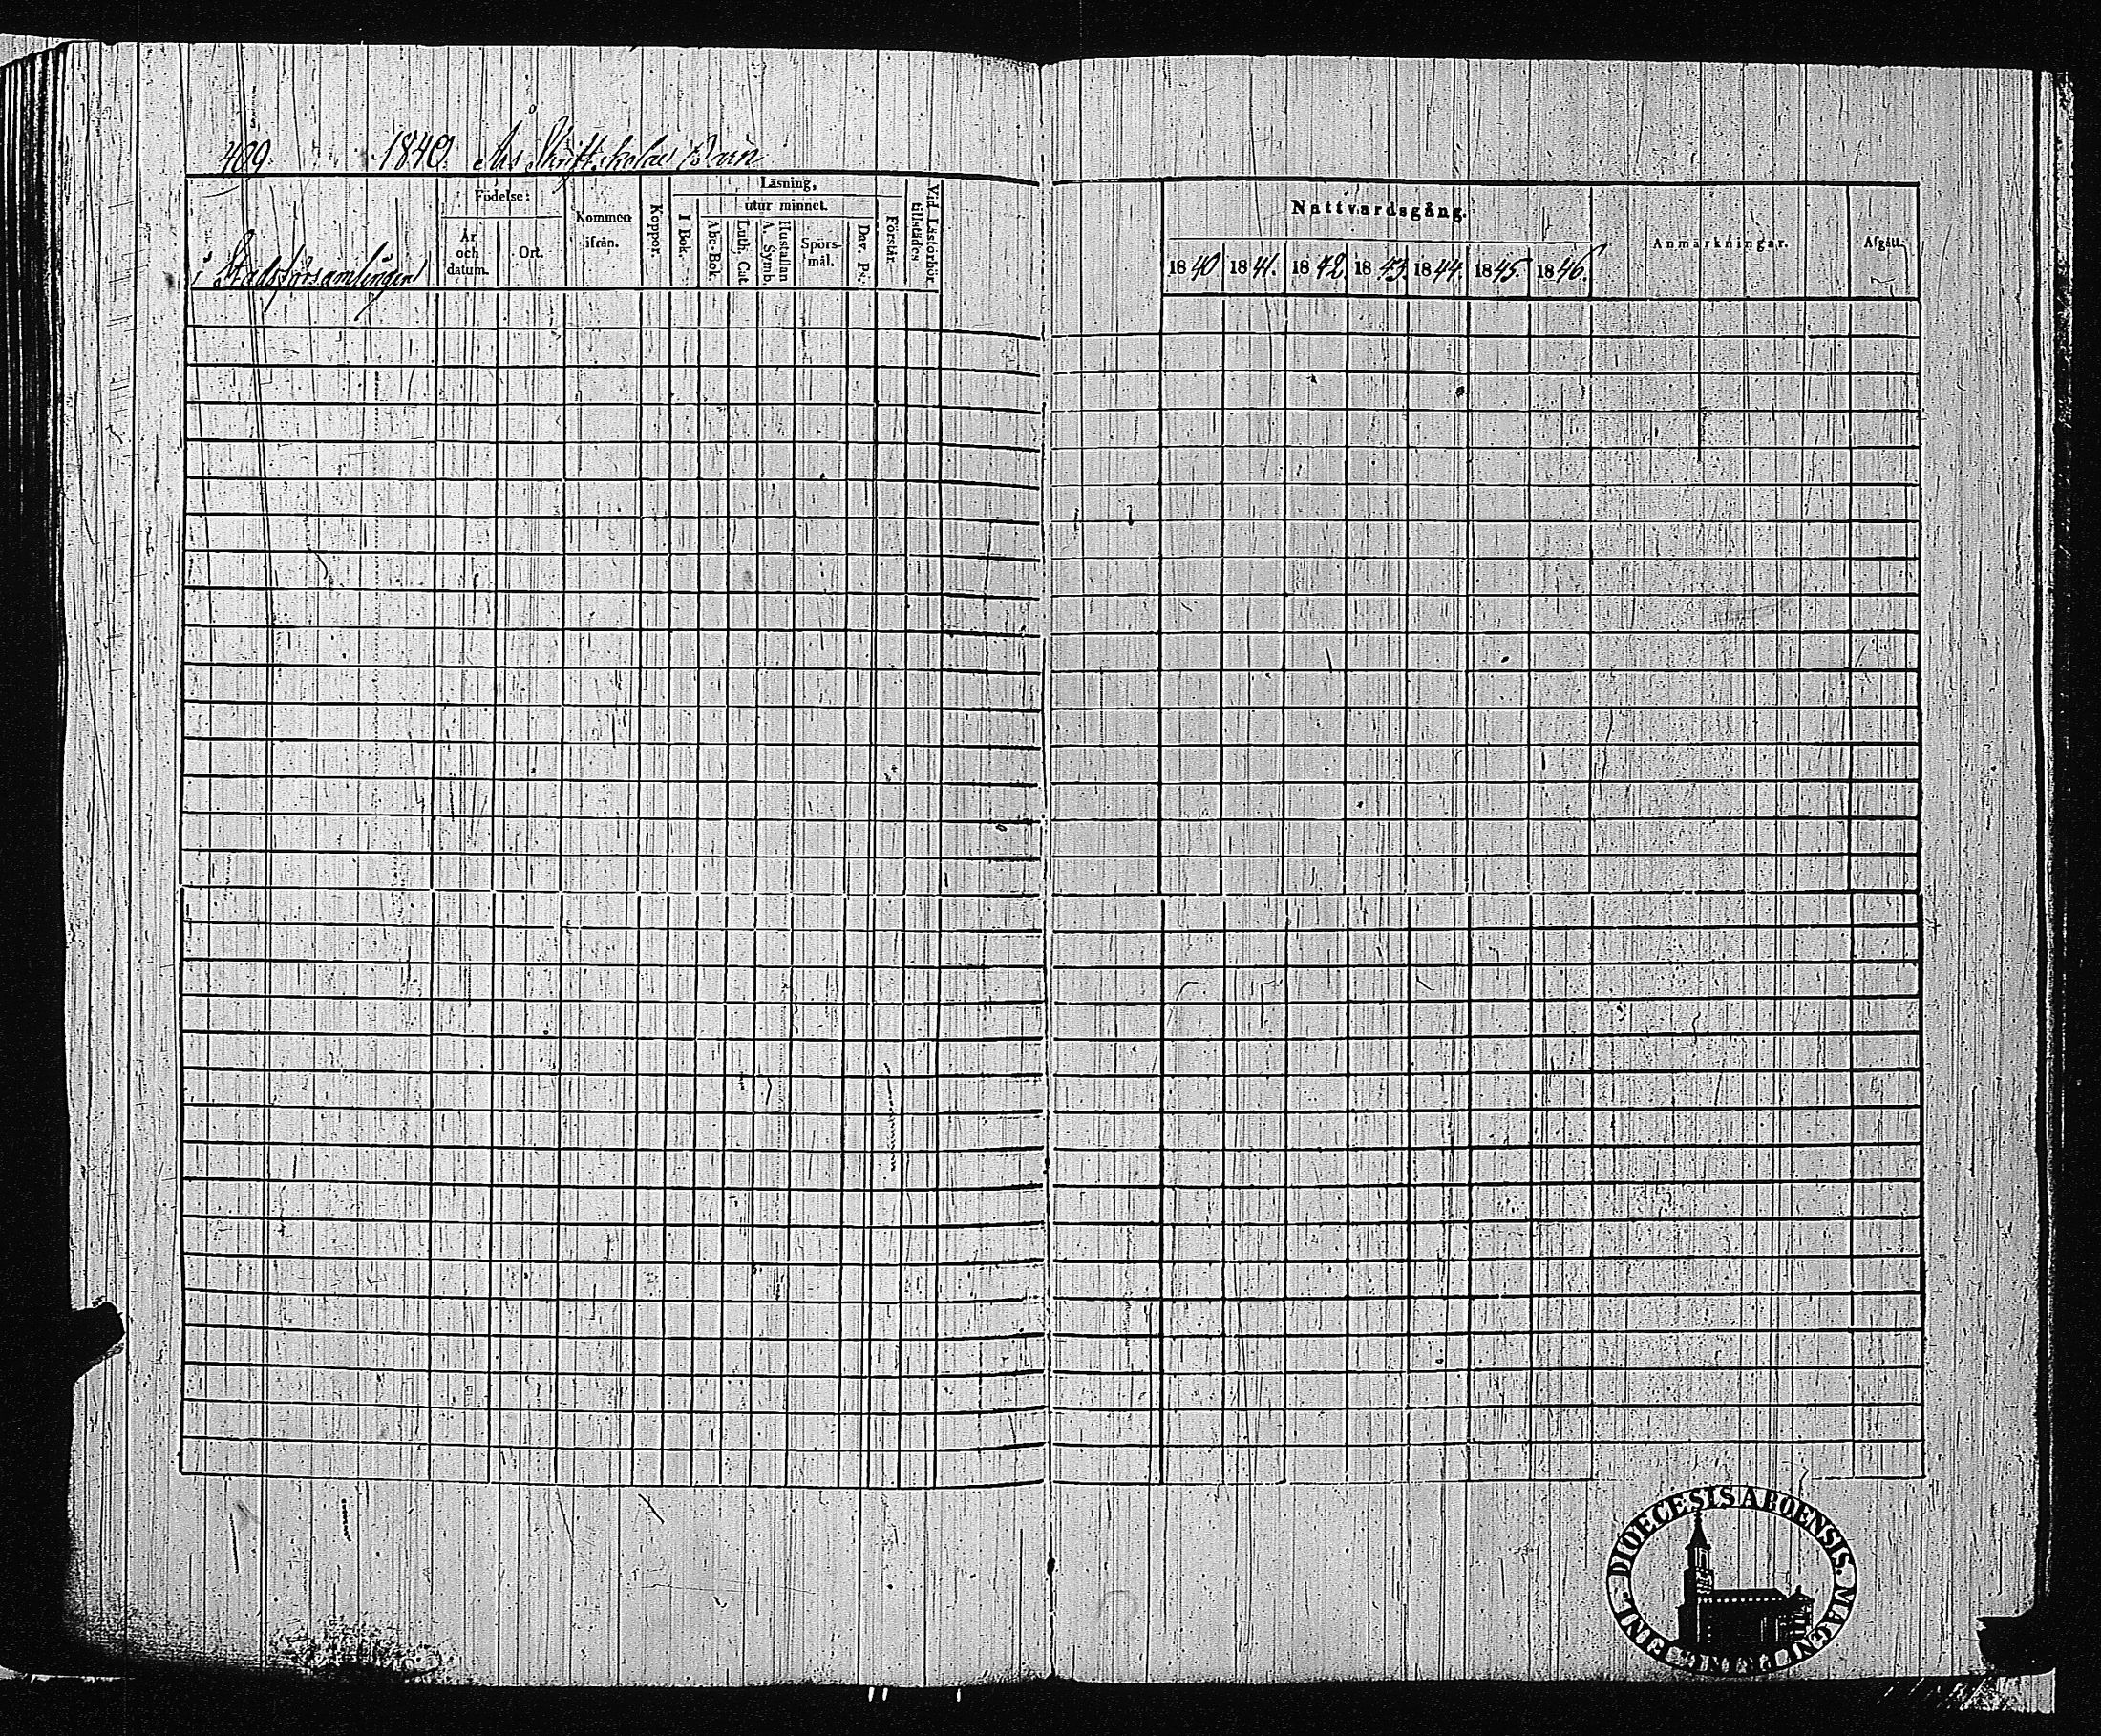 409 1840 Års Skriftskolae Barn
i Stadsförsamlingen
Födelse:
År och datum.
Ort.
Kommen ifrån.
Koppor.
Läsning,
utur minnet.
I Bok.
Abc-Bok.
Luth. Cat.
Hustaflan A. Symb.
Spörsmål.
Dav. Ps.
Förstår.
Vid Läsförhör tillstädes
Nattvardsgång.
1840 1841. 1842. 1843. 1844. 1845 1846.
Anmärkningar.
Afgått.
DIOECESIS ABOENSIS. MAGNI PRINC. FINL.